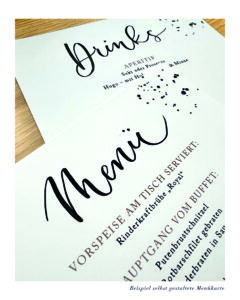 Drinks
APERITIF
Sekt oder Prosecco
Hugo – mit
& Minze
Menü
VORSPEISE AM TISCH SERVIERT:
Rinderkraftbrühe „Royal"
HAUPTGANG VOM BUFFET:
Putenbrustschnitzel
Rotbarschfilet gebraten
Beispiel selbst gestaltete Menükarte